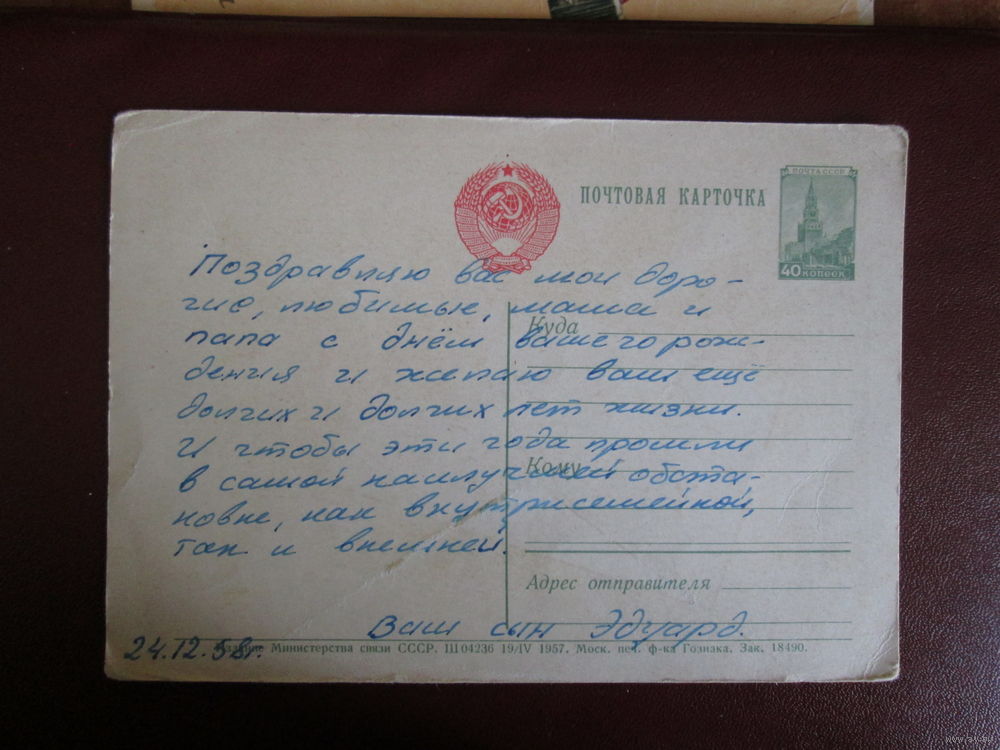 ПОЧТОВАЯ КАРТОЧКА
ПОЧТА СССР
40 КОПЕЕК
Поздравляю вас мои доро-
гие, любимые, мама и
папа с днём вашего рож-
дения и желаю вам ещё
долгих и долгих лет жизни.
И чтобы эти года прошли
в самой наилучшей обста-
новке, как внутрисемейной,
так и внешней.
Ваш сын Эдуард.
24.12.58г.
Куда
Кому
Адрес отправителя
Издание Министерства связи СССР. Ш04236 19/IV 1957. Моск. печ. ф-ка Гознака. Зак. 18490.